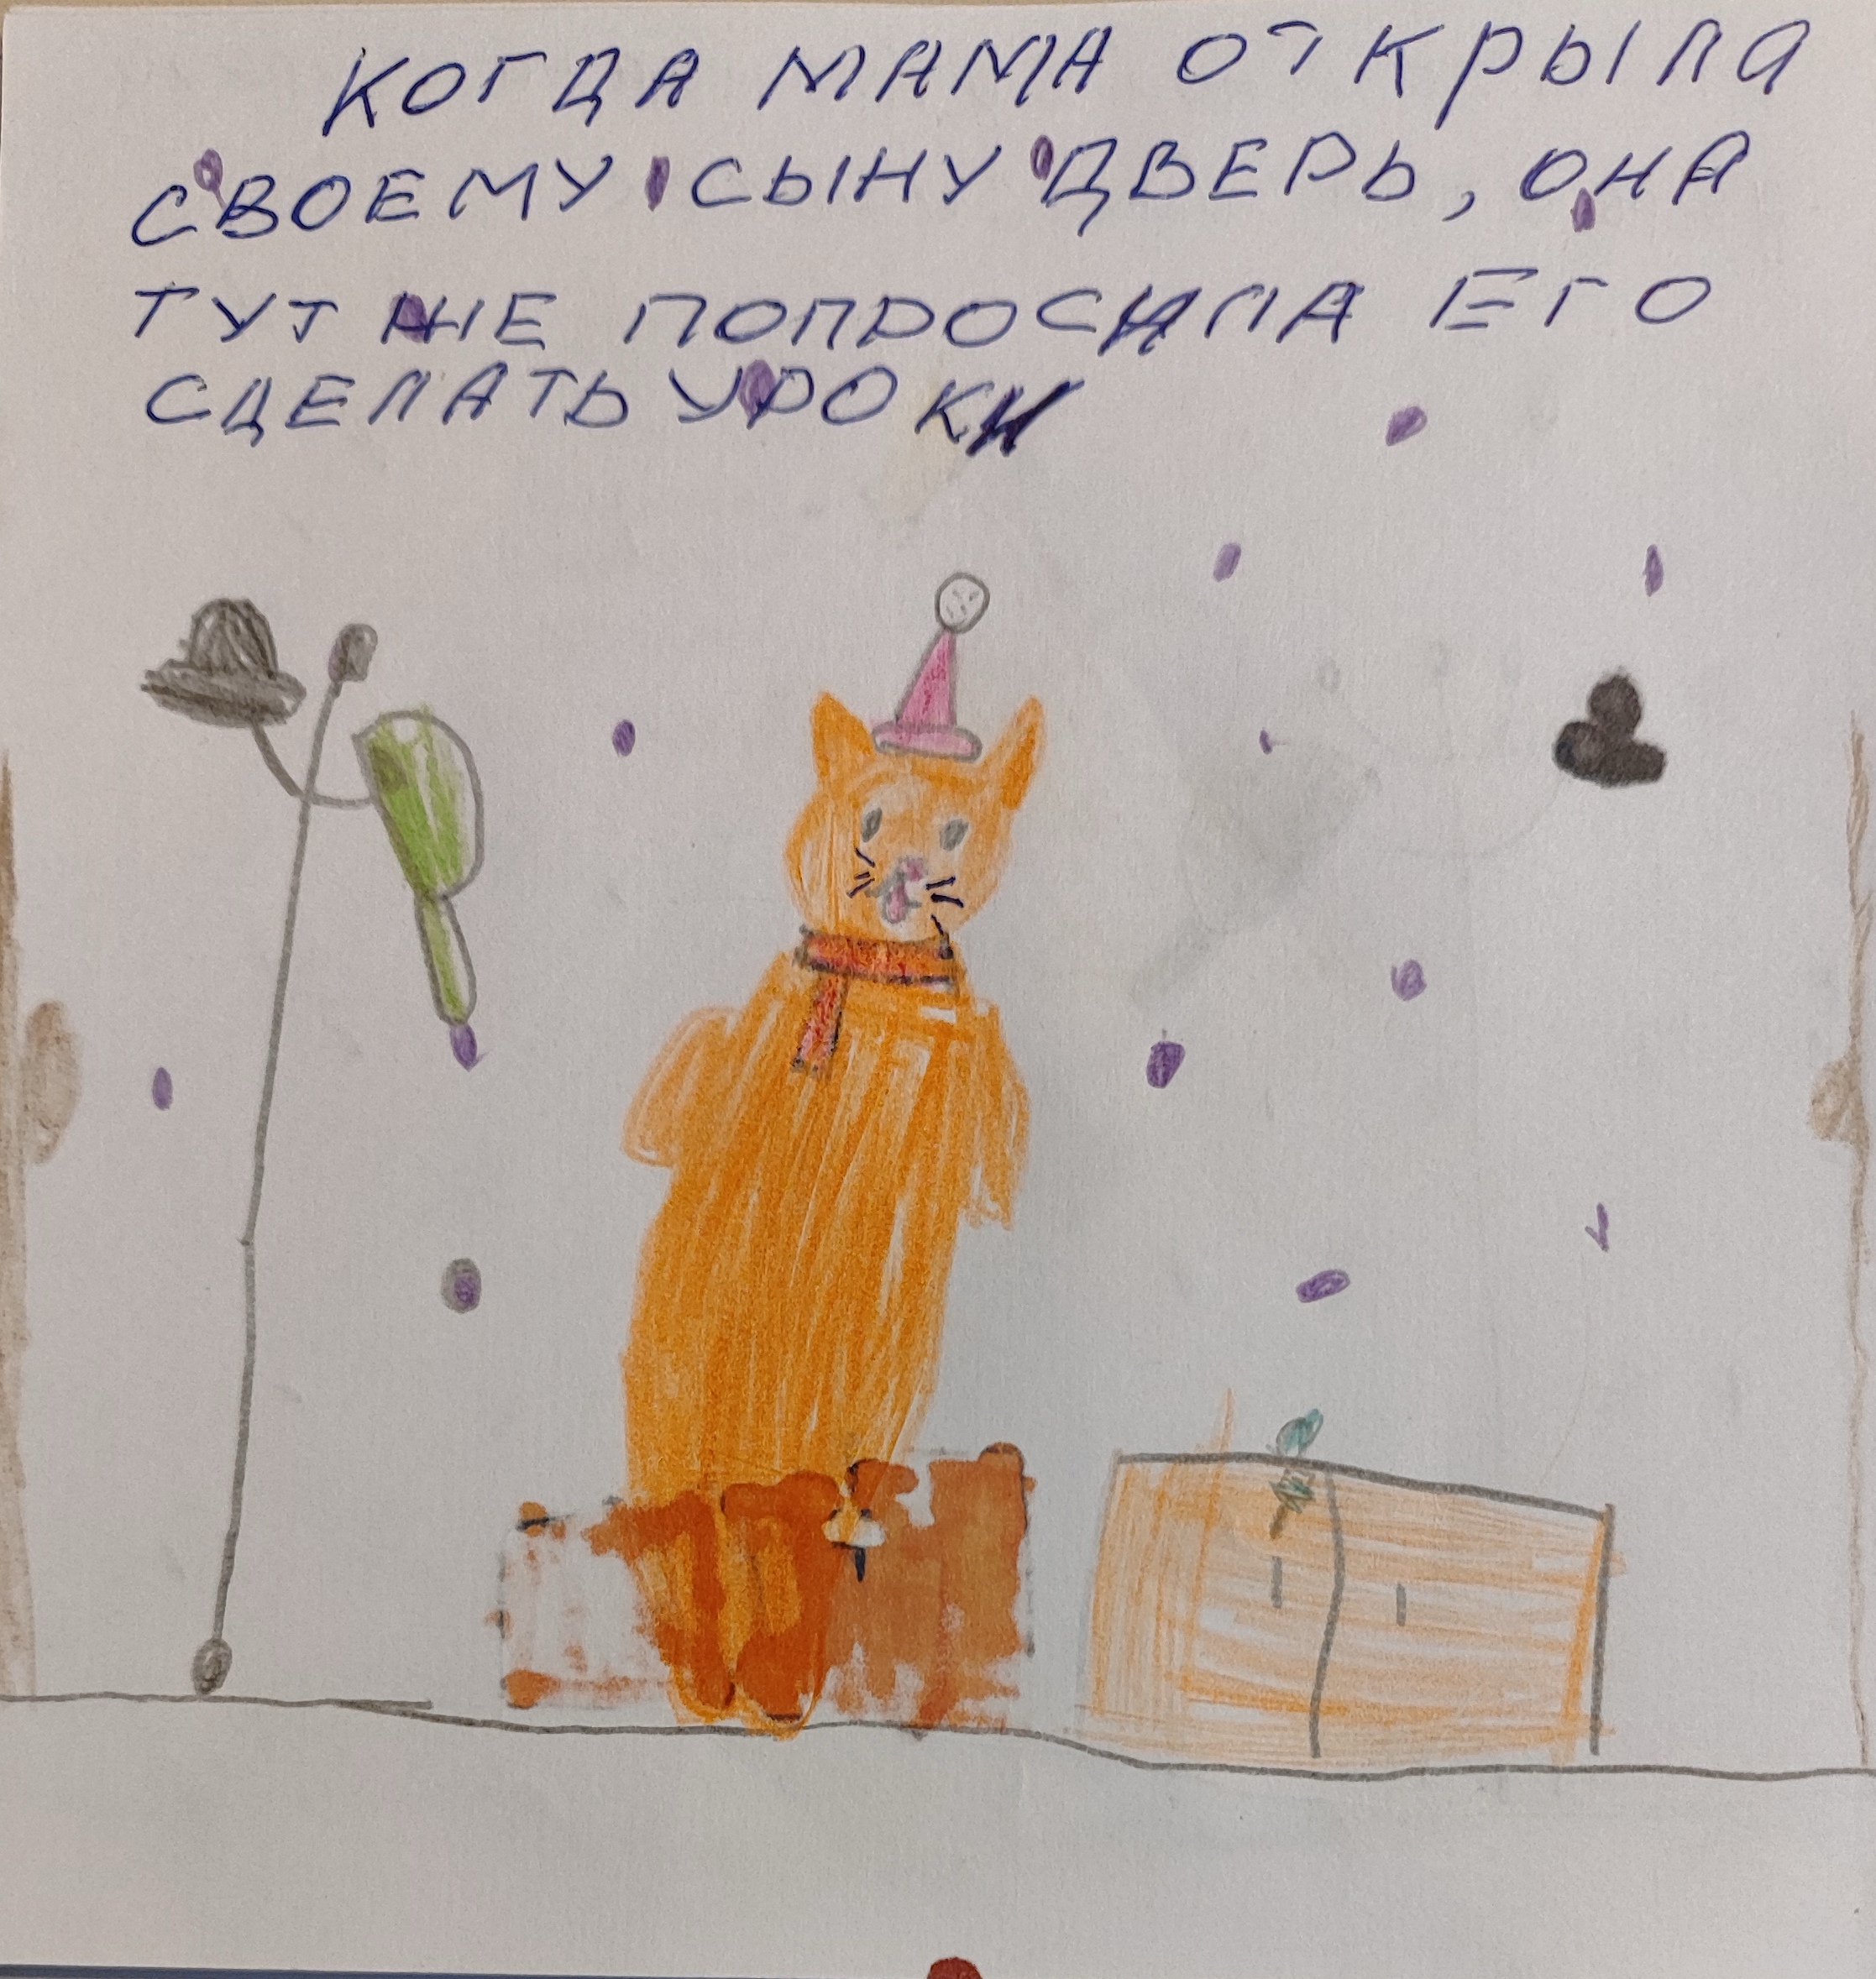 КОГДА МАМА ОТКРЫЛА
СВОЕМУ СЫНУ ДВЕРЬ, ОНА
ТУТ ЖЕ ПОПРОСИЛА ЕГО
СДЕЛАТЬ УРОКИ